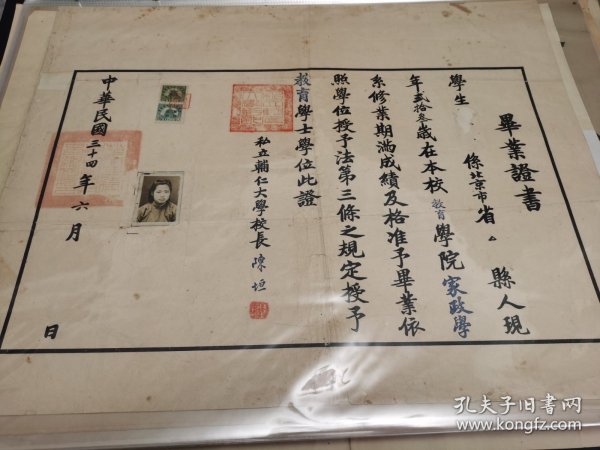 畢業證書
學生 係北京市省 縣人現
年貳拾叁歲在本校教育學院家政學
系修業期滿成績及格准予畢業依
照學位授予法第三條之規定授予
教育學士學位此證
私立輔仁大學校長 陳垣
中華民國三十四年六月 日
孔夫子旧书网
www.kongfz.com